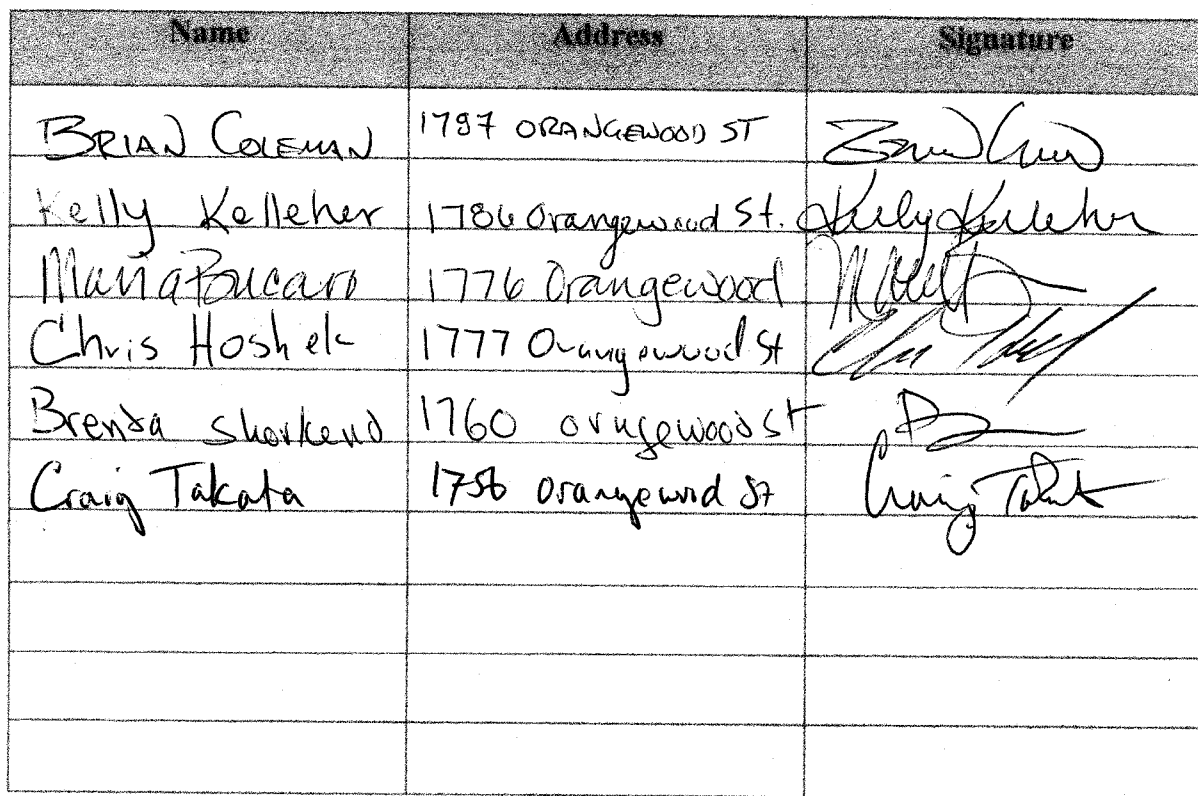 Name Address Signature
BRIAN COLEMAN 1787 ORANGEWOOD ST
Kelly Kelleher 1786 Orangewood St. Kelly Kelleher
Maria 1776 Orangewood
Chris Hoshek 1777 Orangewood St
Brenda 1760 orngewood st
Craig Takata 1756 Orangewod St Craig